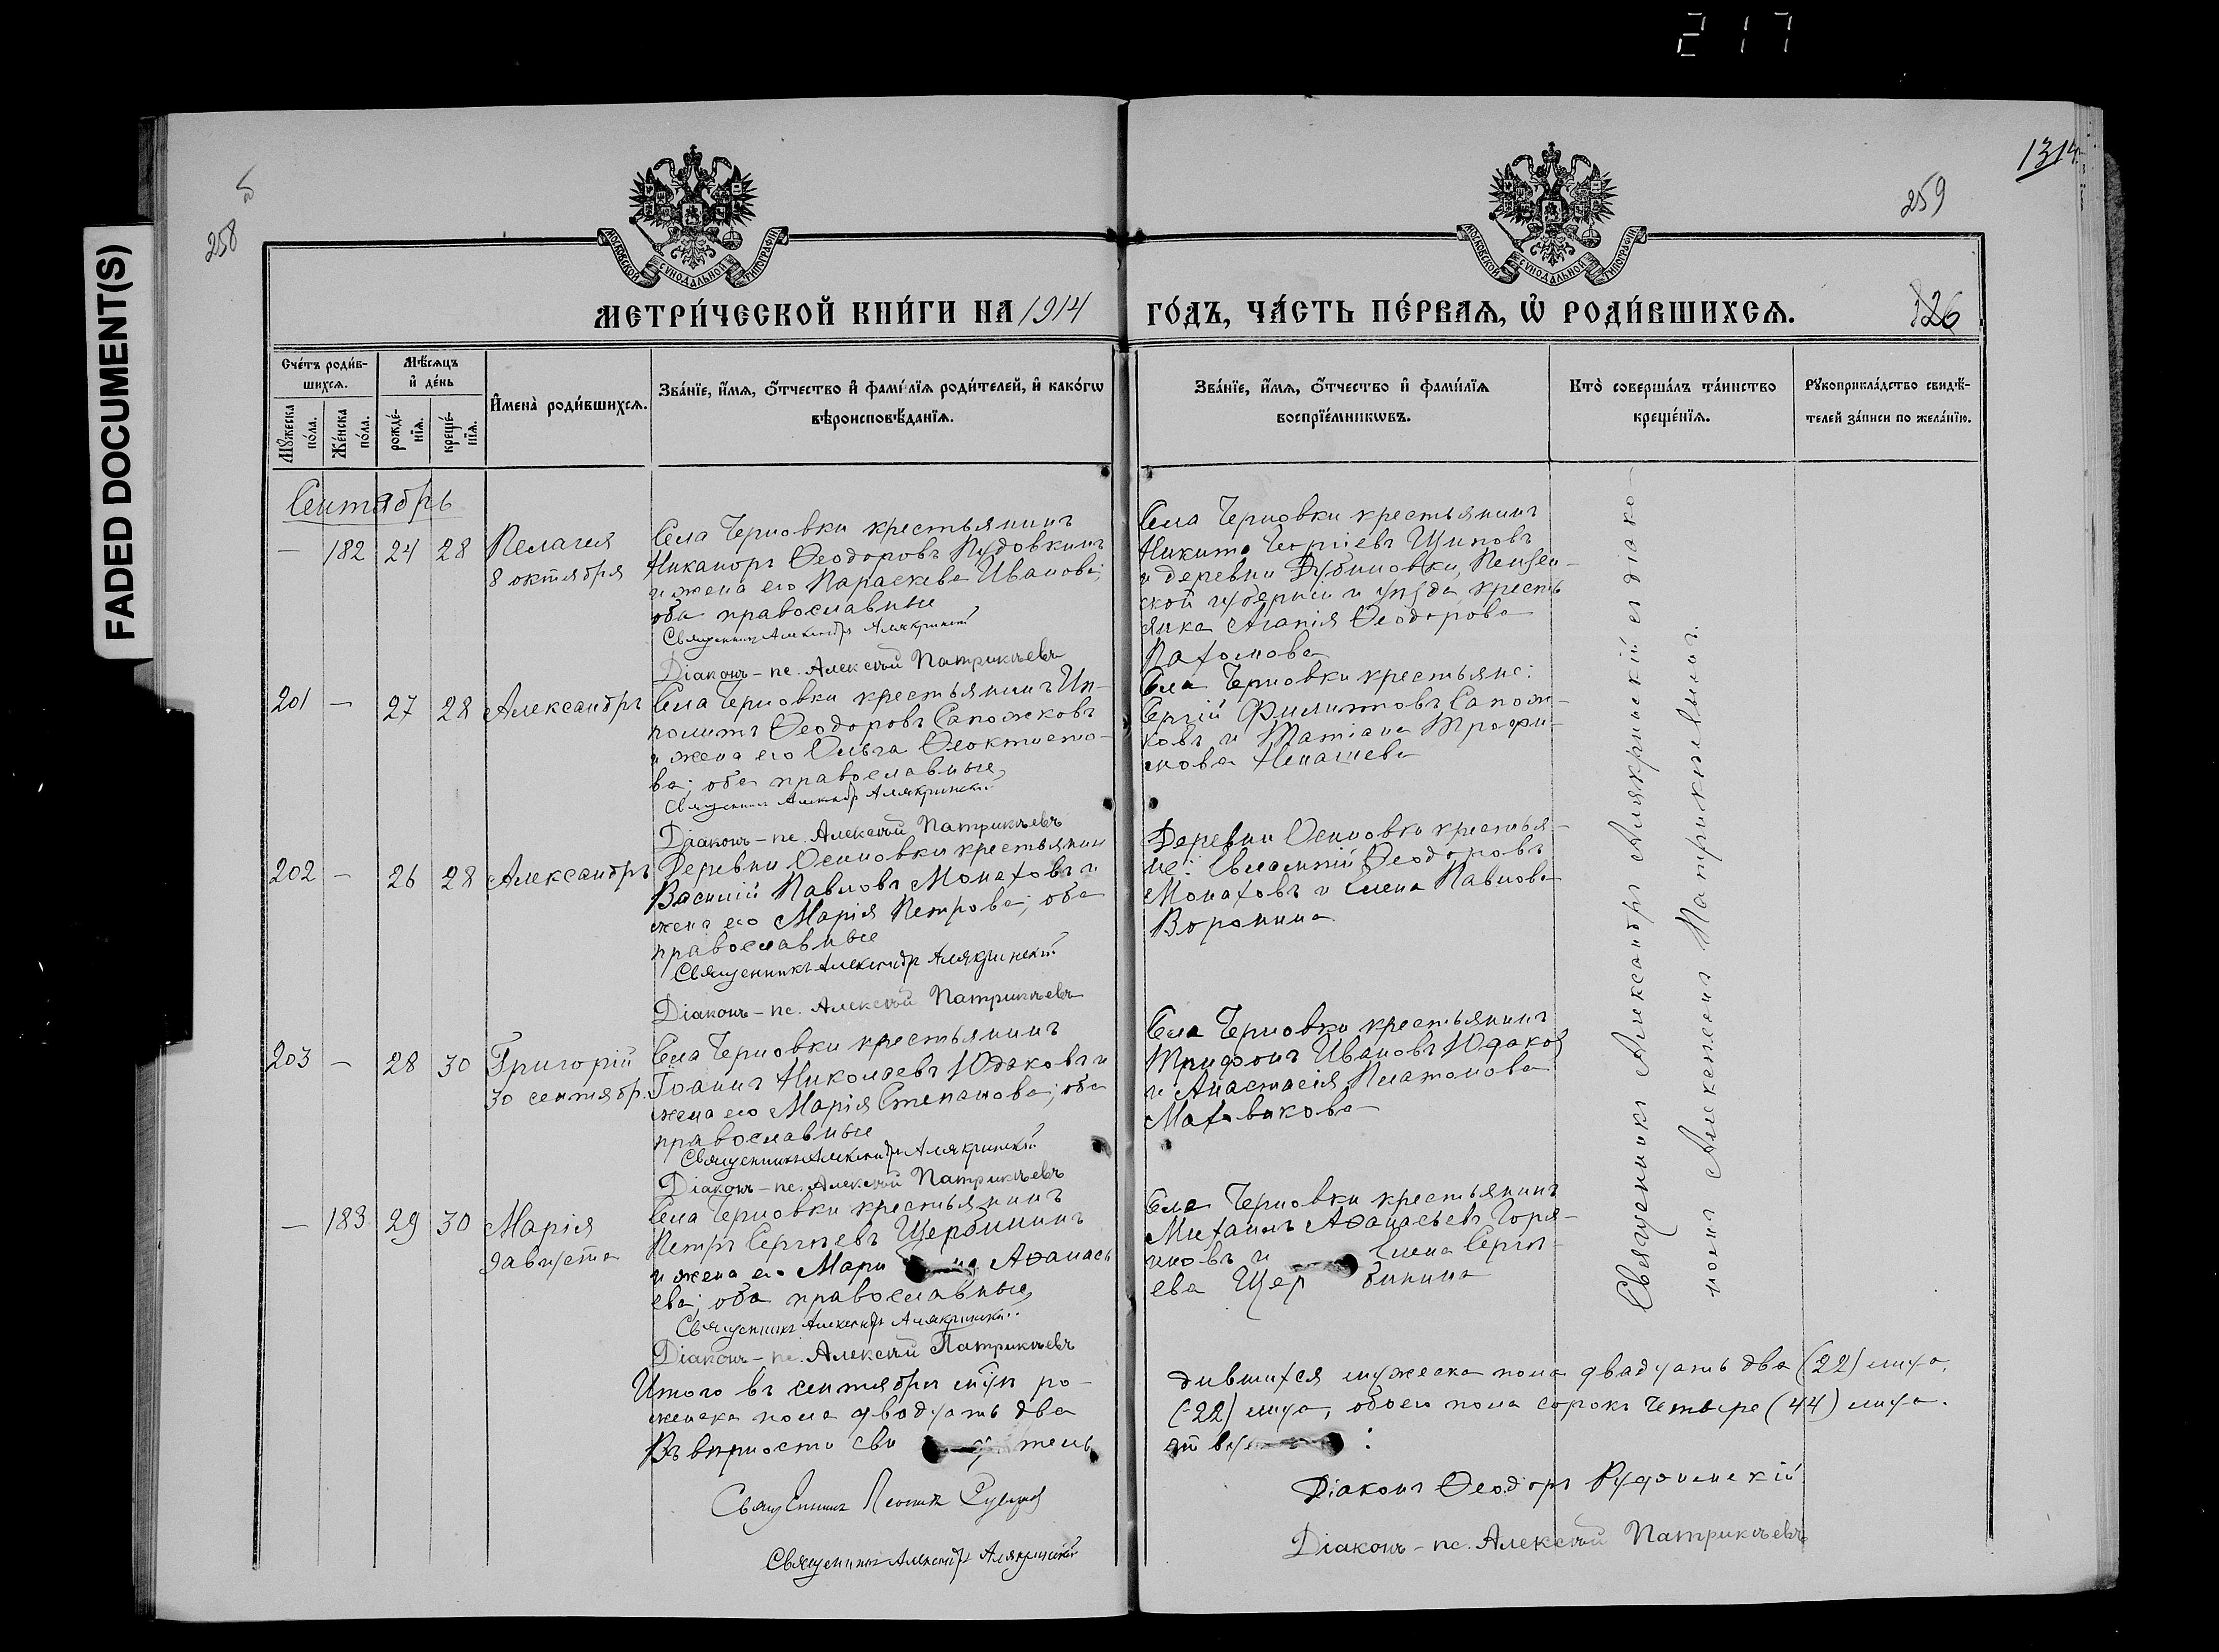 217
FADED DOCUMENT(S)
258
259
1314
МОСКОВСКОЙ СУНОДАЛЬНОЙ ТИПОГРАФІИ
МОСКОВСКОЙ СУНОДАЛЬНОЙ ТИПОГРАФІИ
МЕТРИ́ЧЕСКОЙ КНИ́ГИ НА 1914
ГО́ДЪ, ЧА́СТЬ ПЕ́РВАѦ, Ѡ҆ РОДИ́ВШИХСѦ.
126
Сче́тъ роди́в-
шихсѧ.
Мꙋ́жеска
по́ла.
Же́нска
по́ла.
Мѣ́сѧцъ
и҆ де́нь
рожде́-
нїѧ.
креще́-
нїѧ.
И҆мена̀ роди́вшихсѧ.
Зва́нїе, и҆́мѧ, ѻ҆́тчество и҆ фамі́лїѧ роди́телей, и҆ како́гѡ
вѣроисповѣ́данїѧ.
Зва́нїе, и҆́мѧ, ѻ҆́тчество и҆ фами́лїѧ
воспрїе́мникѡвъ.
Кто̀ соверша́лъ та́инство
креще́нїѧ.
Рꙋкоприкла́дство свидѣ́-
телей за́писи по жела́нїю.
Сентябрь
— 182 24 28 Пелагея
8 октября
Села Черновки крестьянинъ
Никаноръ Ѳеодоровъ Пудовкинъ
и жена его Параскева Иванова;
оба православные
Священникъ Александръ Алякринскій
Діаконъ-пс. Алексѣй Патрикѣевъ
Села Черновки крестьянинъ
Никита Георгіевъ Щиповъ
и деревни Дубиновки, Пензен-
ской губерніи и уѣзда кресть
янка Агапія Ѳеодорова
Пахомова
201 — 27 28 Александръ
Села Черновки крестьянинъ Ип-
политъ Ѳеодоровъ Сапожковъ
и жена его Ольга Ѳеоктисто-
ва; оба православные,
Священникъ Александръ Алякринскій
Діаконъ-пс. Алексѣй Патрикѣевъ
Села Черновки крестьяне:
Сергій Филипповъ Сапож-
ковъ и Татіана Трофи-
мова Ненашева
202 — 26 28 Александръ
Деревни Осиповки крестьянин
Василій Павловъ Монаховъ и
жена его Марія Петрова; оба
православные
Священникъ Александръ Алякринскій
Діаконъ-пс. Алексѣй Патрикѣевъ
Деревни Осиповки крестья-
не: Евлампій Ѳеодоровъ
Монаховъ и Елена Павлова
Воронина
203 — 28 30 Григорій
30 сентябр.
Села Черновки крестьянинъ
Іоаннъ Николаевъ Юдаковъ и
жена его Марія Степанова; оба
православные
Священникъ Александръ Алякринскій
Діаконъ-пс. Алексѣй Патрикѣевъ
Села Черновки крестьянинъ
Трифонъ Ивановъ Юдаков
и Анастасія Платонова
Маховикова
— 183 29 30 Марія
9 августа
Села Черновки крестьянинъ
Петръ Сергѣевъ Щербининъ
и жена его Мари на Аѳанась
ева; оба православные,
Священникъ Александръ Алякринскій
Діаконъ-пс. Алексѣй Патрикѣевъ
Села Черновки крестьянинъ
Михаилъ Аѳанасьевъ Горя-
иновъ и Елена Сергѣ-
ева Щербинина
Священникъ Александръ Алякринскій съ діако-
номъ Алексѣемъ Патрикѣевымъ.
Итого въ сентябрѣ мѣсяцѣ ро-
дившихся мужеска пола двадцать два (22) лица,
женска пола двадцать два
(22) лица, обоего пола сорокъ четыре (44) лица.
Въ вѣрности сви тель
ствуютъ:
Священникъ Леонидъ
Діаконъ Ѳеодоръ
Священникъ Александръ Алякринскій
Діаконъ-пс. Алексѣй Патрикѣевъ